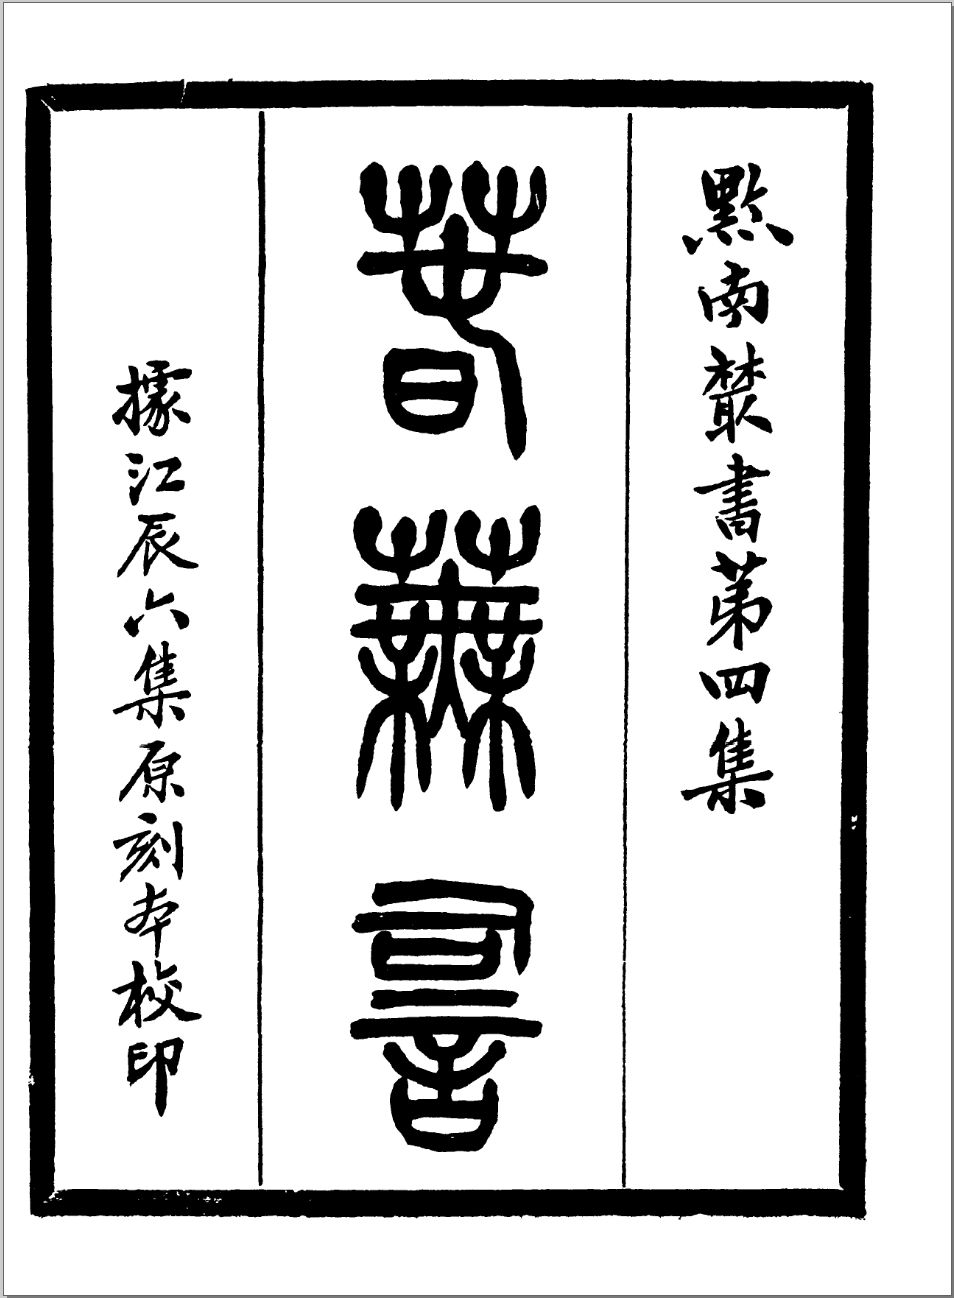 黔南叢書第四集
春蕪詞
據江辰六集原刻本校印